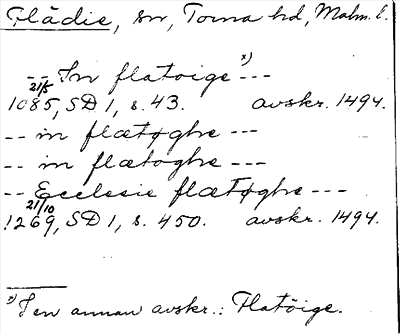 Flädie, sn, Torna hd, Malm. l.
-- In flatoige x) ---
21/5
1085, SD 1, s. 43. avskr. 1494.
-- in flætøghe ---
-- in flætøghe ---
-- Ecclesie flætøghe ---
21/10
1269, SD 1, s. 450. avskr. 1494.
x) I en annan avskr.: Flatöige.